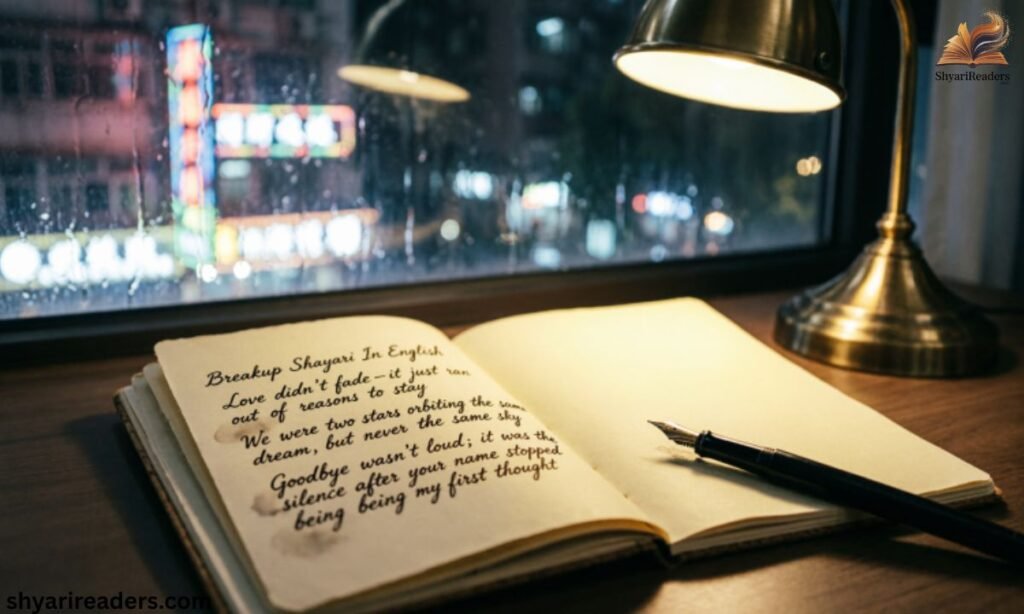 ShyariReaders
Breakup Shayari In English
Love didn't fade—it just ran
out of reasons to stay
We were two stars orbiting the same
dream, but never the same sky
Goodbye wasn't loud; it was the
silence after your name stopped
being being my first thought
shyarireaders.com